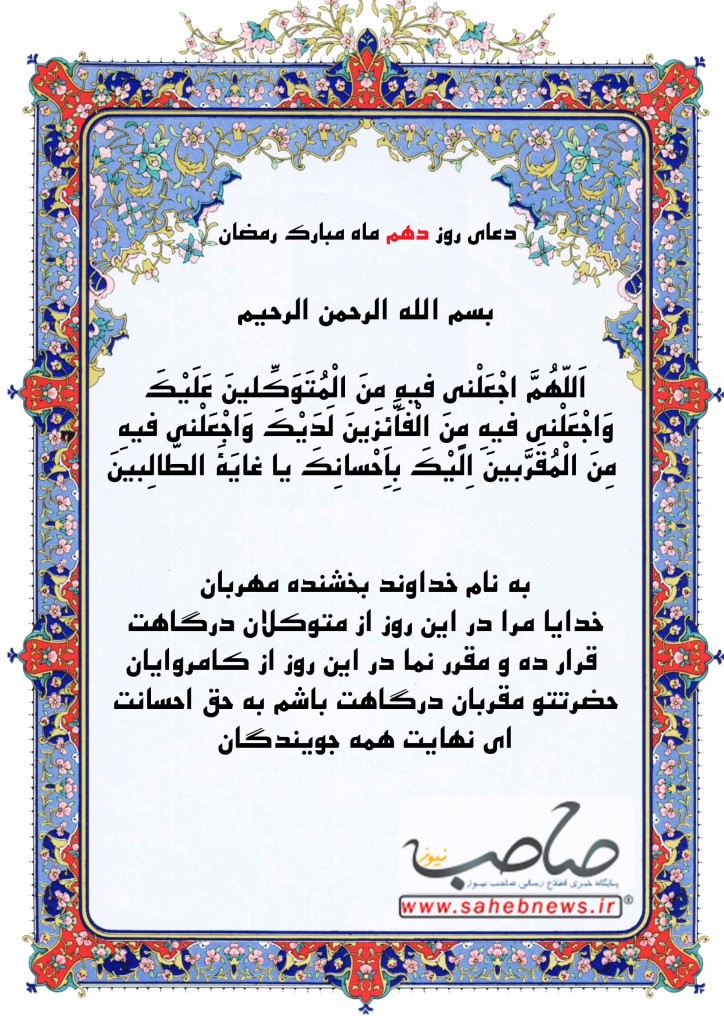 دعای روز دهم ماه مبارک رمضان
بسم الله الرحمن الرحیم
اَللّهُمَّ اجْعَلْنی فیهِ مِنَ الْمُتَوَکِّلینَ عَلَیْکَ
وَاجْعَلْنی فیهِ مِنَ الْفاَّئِزینَ لَدَیْکَ وَاجْعَلْنی فیهِ
مِنَ الْمُقَرَّبینَ اِلَیْکَ بِاِحْسانِکَ یا غایَةَ الطّالِبینَ
به نام خداوند بخشنده مهربان
خدایا مرا در این روز از متوکلان درگاهت
قرار ده و مقرر نما در این روز از کامروایان
حضرتتو مقربان درگاهت باشم به حق احسانت
ای نهایت همه جویندگان
صاحب نیوز
پایگاه خبری اطلاع رسانی صاحب نیوز
www.sahebnews.ir®